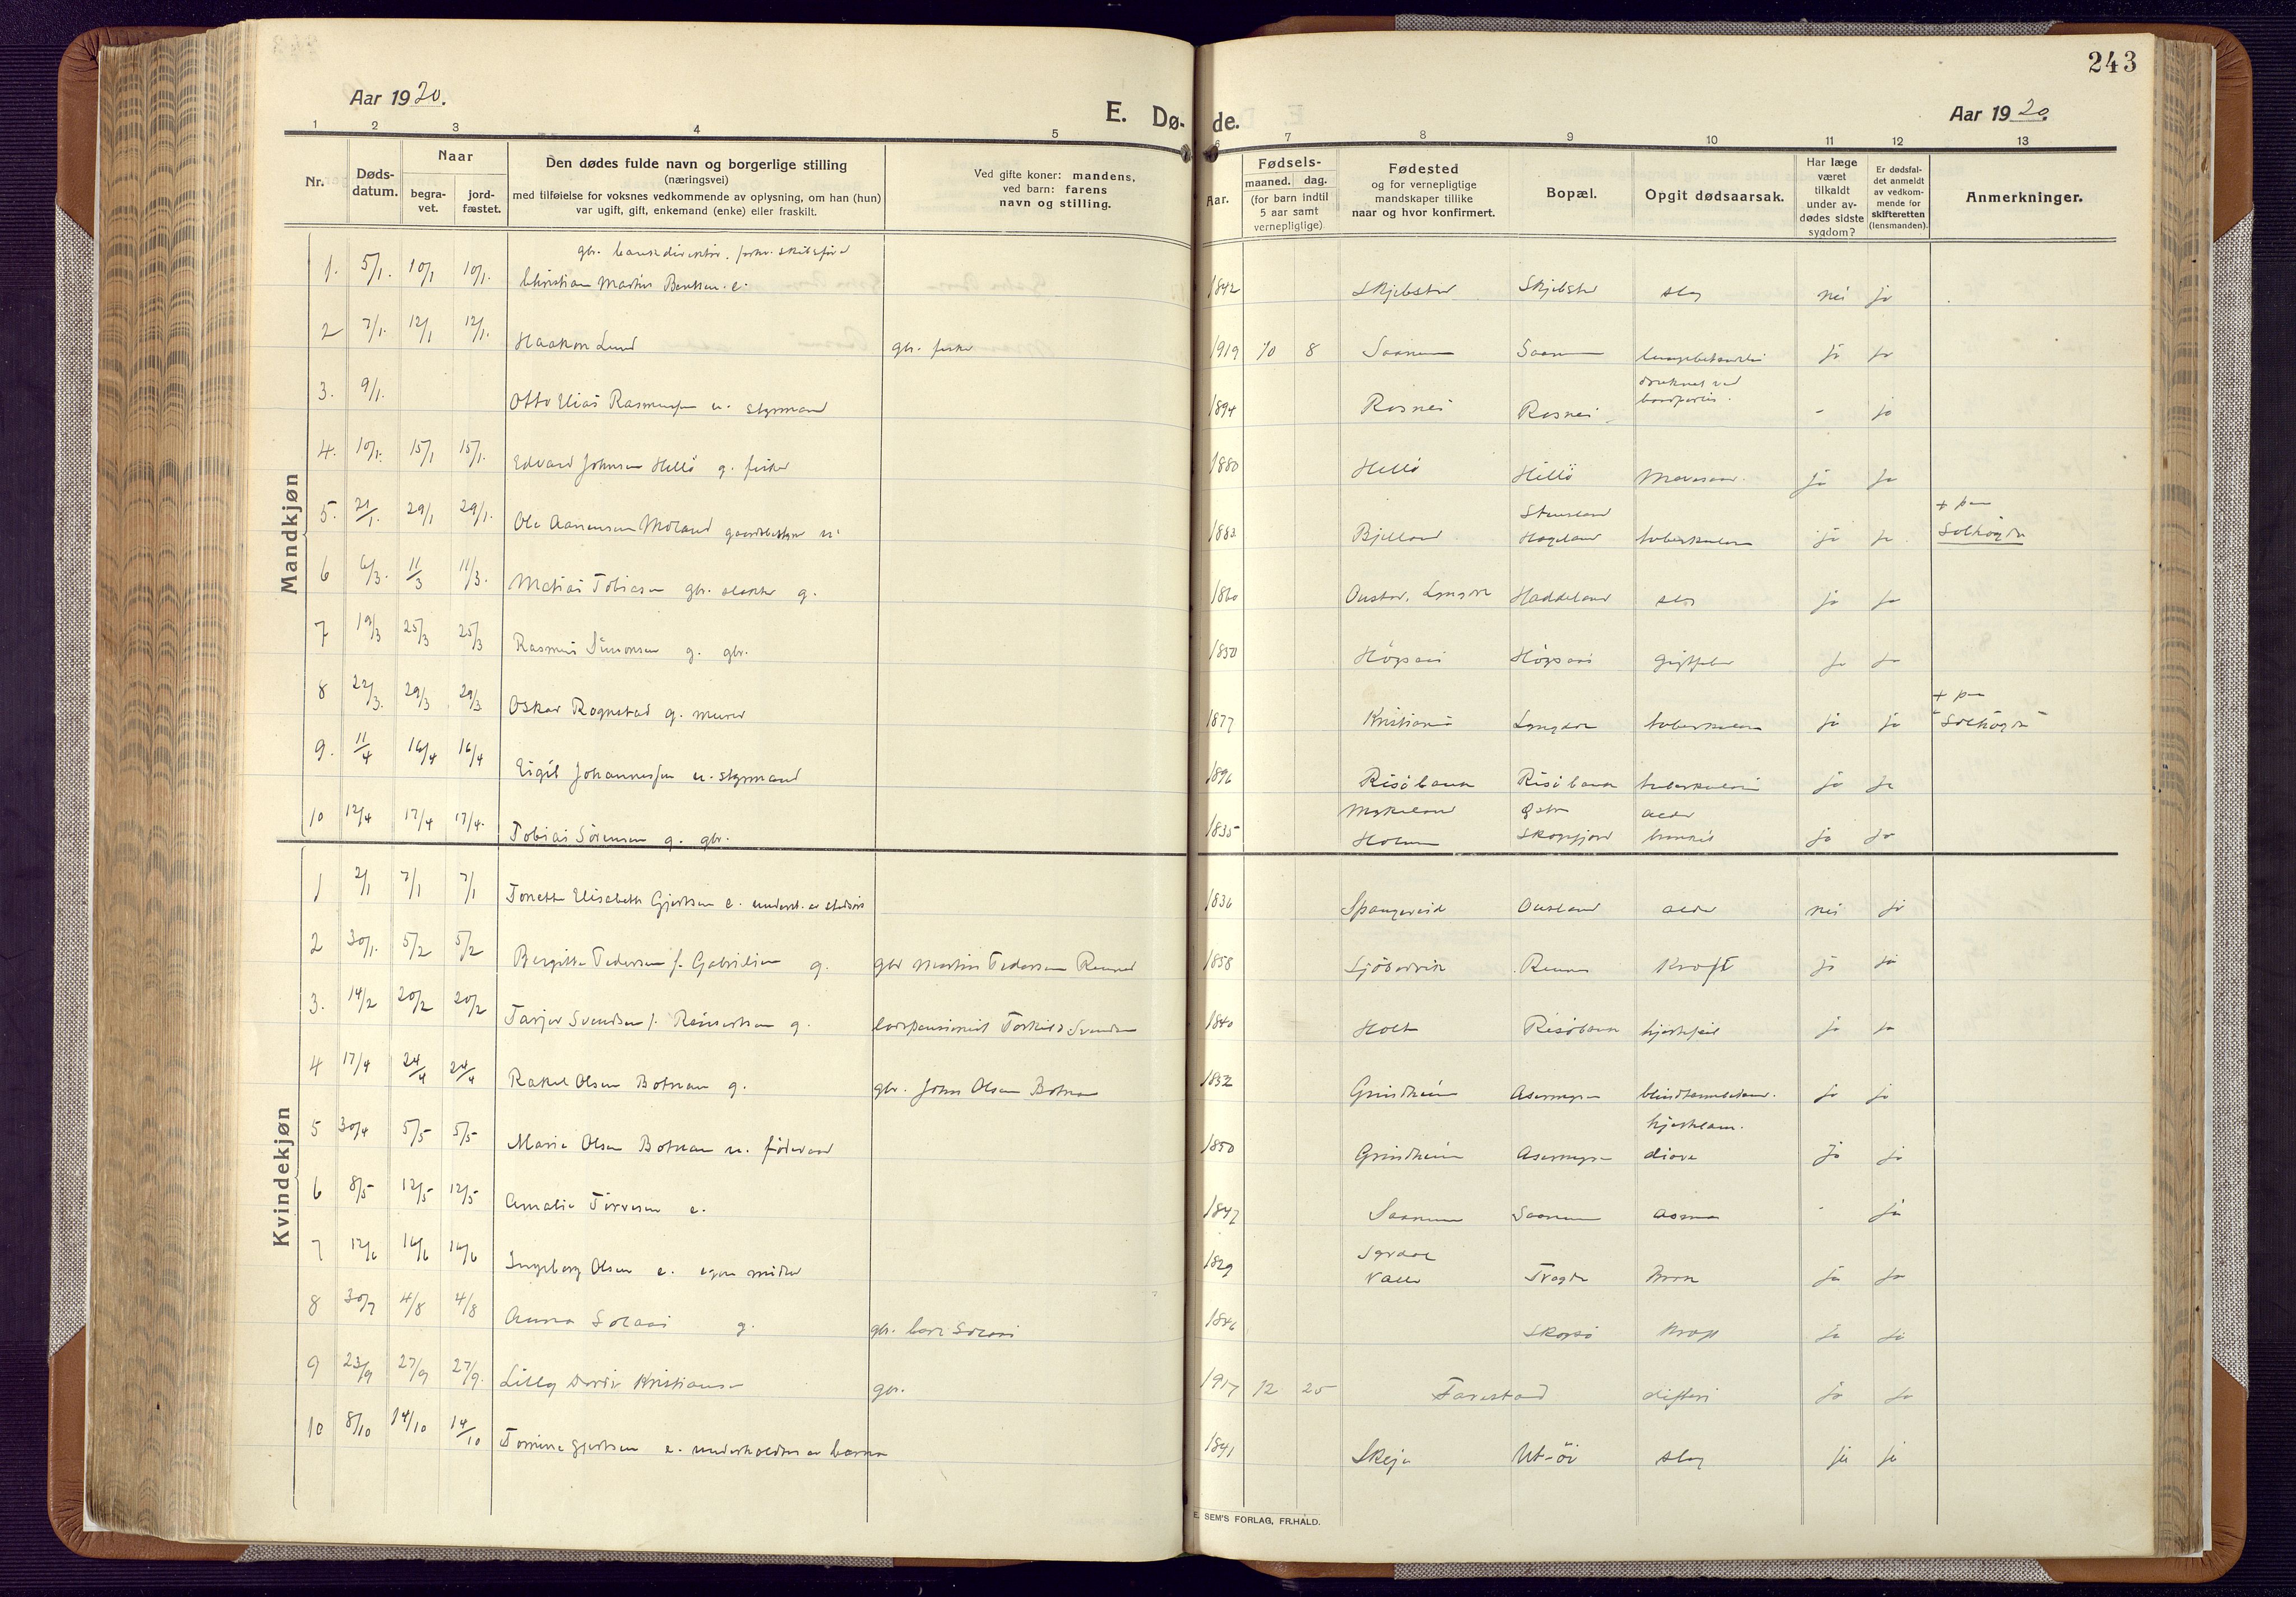 243
Aar 1920.
E. Dø-
de.
Aar 1920
1 2 3 4 5 6 7 8 9 10 11 12 13
Nr.
Døds-
datum.
Naar
begra-
vet.
jord-
fæstet.
Den dødes fulde navn og borgerlige stilling
(næringsvei)
med tilføielse for voksnes vedkommende av oplysning, om han (hun)
var ugift, gift, enkemand (enke) eller fraskilt.
Ved gifte koner: mandens,
ved barn: farens
navn og stilling.
Aar.
Fødsels-
maaned. dag.
(for barn indtil
5 aar samt
vernepligtige)
Fødested
og for vernepligtige
mandskaper tillike
naar og hvor konfirmert.
Bopæl.
Opgit dødsaarsak.
Har læge
været
tilkaldt
under av-
dødes sidste
sygdom?
Er dødsfal-
det anmeldt
av vedkom-
mende for
skifteretten
(lensmanden).
Anmerkninger.
Mandkjøn
gbr. bankdirektør, forhv. skibsfører
1. 5/1. 10/1 10/1. Christian Martin Bentsen. e. 1842 Skjebstad Skjebstad slag nei ja
2 7/1. 12/1 12/1. Haakon Lund gbr. fisker 1919 10 8 Saanum Saanum ja ja
druknet ved
3. 9/1. Otto Elias Rasmussen u. styrmand 1894 Rosnes Rosnes - ja
4. 10/1. 15/1 15/1. Edvard Johnsen Hellö g. fisker 1880 Hellö Hillö Mavesaar. ja ja
Stensland + paa
5. 21/1. 29/1 29/1. Ole Aanensen Möland gaardsbestyrer u. 1883 Bjelland Hageland tuberkulose ja ja Solhögda
6 6/3. 11/3 11/3. Matias Tobiasen gbr. slakter g. 1860 Lyngdal Haddeland slag ja ja
7 19/3 25/3 25/3 Rasmus Simonsen g. gbr. 1850 Högsaas Högsaas gigtfeber ja ja
+ paa
8 22/3. 29/3 29/3 Oskar Rognstad g. murer 1877 Kristiania Lyngdal tuberkulose ja ja Solhögda
9. 11/4 16/4 16/4 Eigil Johannessen u. styrmand 1896 Risöbank Risöbank tuberkulose ja ja
Myklland
10 12/4 17/4 17/4. Tobias Sörensen g. gbr. 1835 Holum Skogsfjord ja ja
Kvindekjøn
1 2/1 7/1 7/1 Tonette Elisabeth Gjertsen e. underst. av 1836 Spangereid Ousland alder nei ja
2 30/1. 5/2 5/2 Bergitte Pedersen f. Gabrielsen g. gbr Martin Pedersen 1858 kræft ja ja
3. 14/2 20/2 20/2 Tarjer Svendsen f. Reinertsen g. lospensionist Torkild Svendsen 1840 Holt Risöbank hjertefeil ja ja
4 17/4 24/4 24/4 Rakel Olsen Botnan g. gbr. John Olsen Botnan 1832 Grindheim blindtarmbetænd. ja ja
hjertelam.
5 30/4 5/5 5/5 Marie Olsen Botnan u. föderaad 1850 Grindheim ja ja
6 8/5 12/5 12/5 Amalie Törresen e. 1847 Saanum Saanum asma - ja
7 12/6 16/6 16/6 Ingeborg Olsen e. egne midler 1829 Valle Tregde Brok ja ja
8 30/7 4/8 4/8 Anna Solaas g. gbr. Carl Solaas 1846 Skogsö kræft ja ja
9 23/9 27/9 27/9. Lilly Dordi Kristiansen gbr. 1917 12 25 Farestad difteri ja ja
10 8/10 14/10 14/10 Tomine Gjertsen e. underholdtes av barna 1841 Skeje Ut-öi slag ja ja
E. SEM'S FORLAG, FR.HALD.